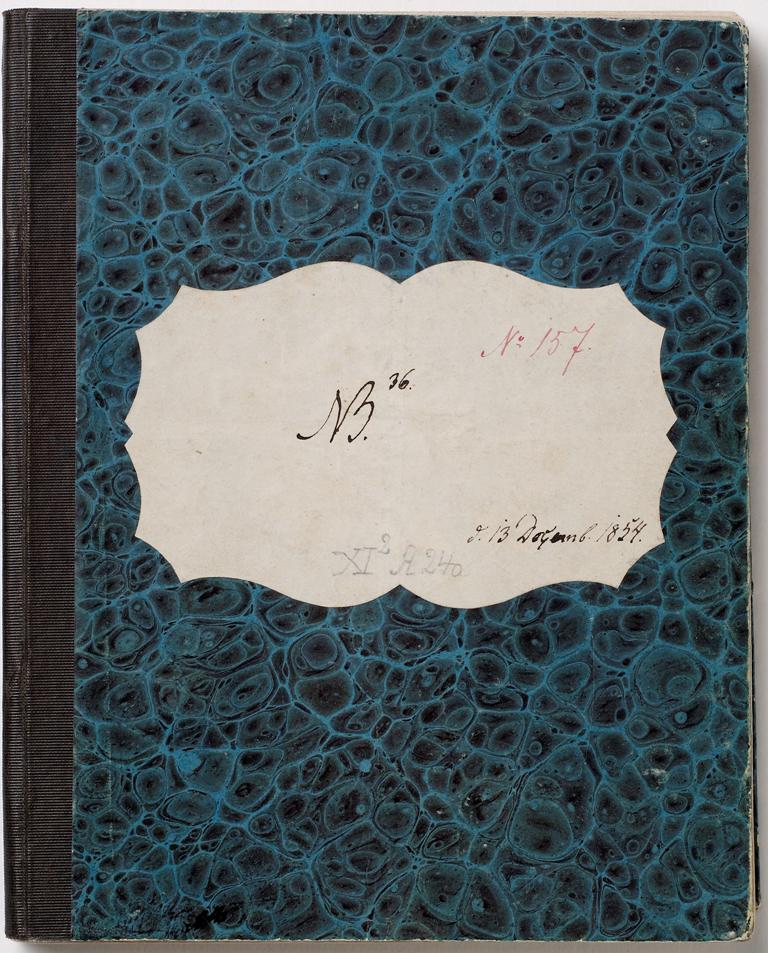 Nº 157.
NB.³⁶·
d. 13 Decemb. 1854.
XI² A 240